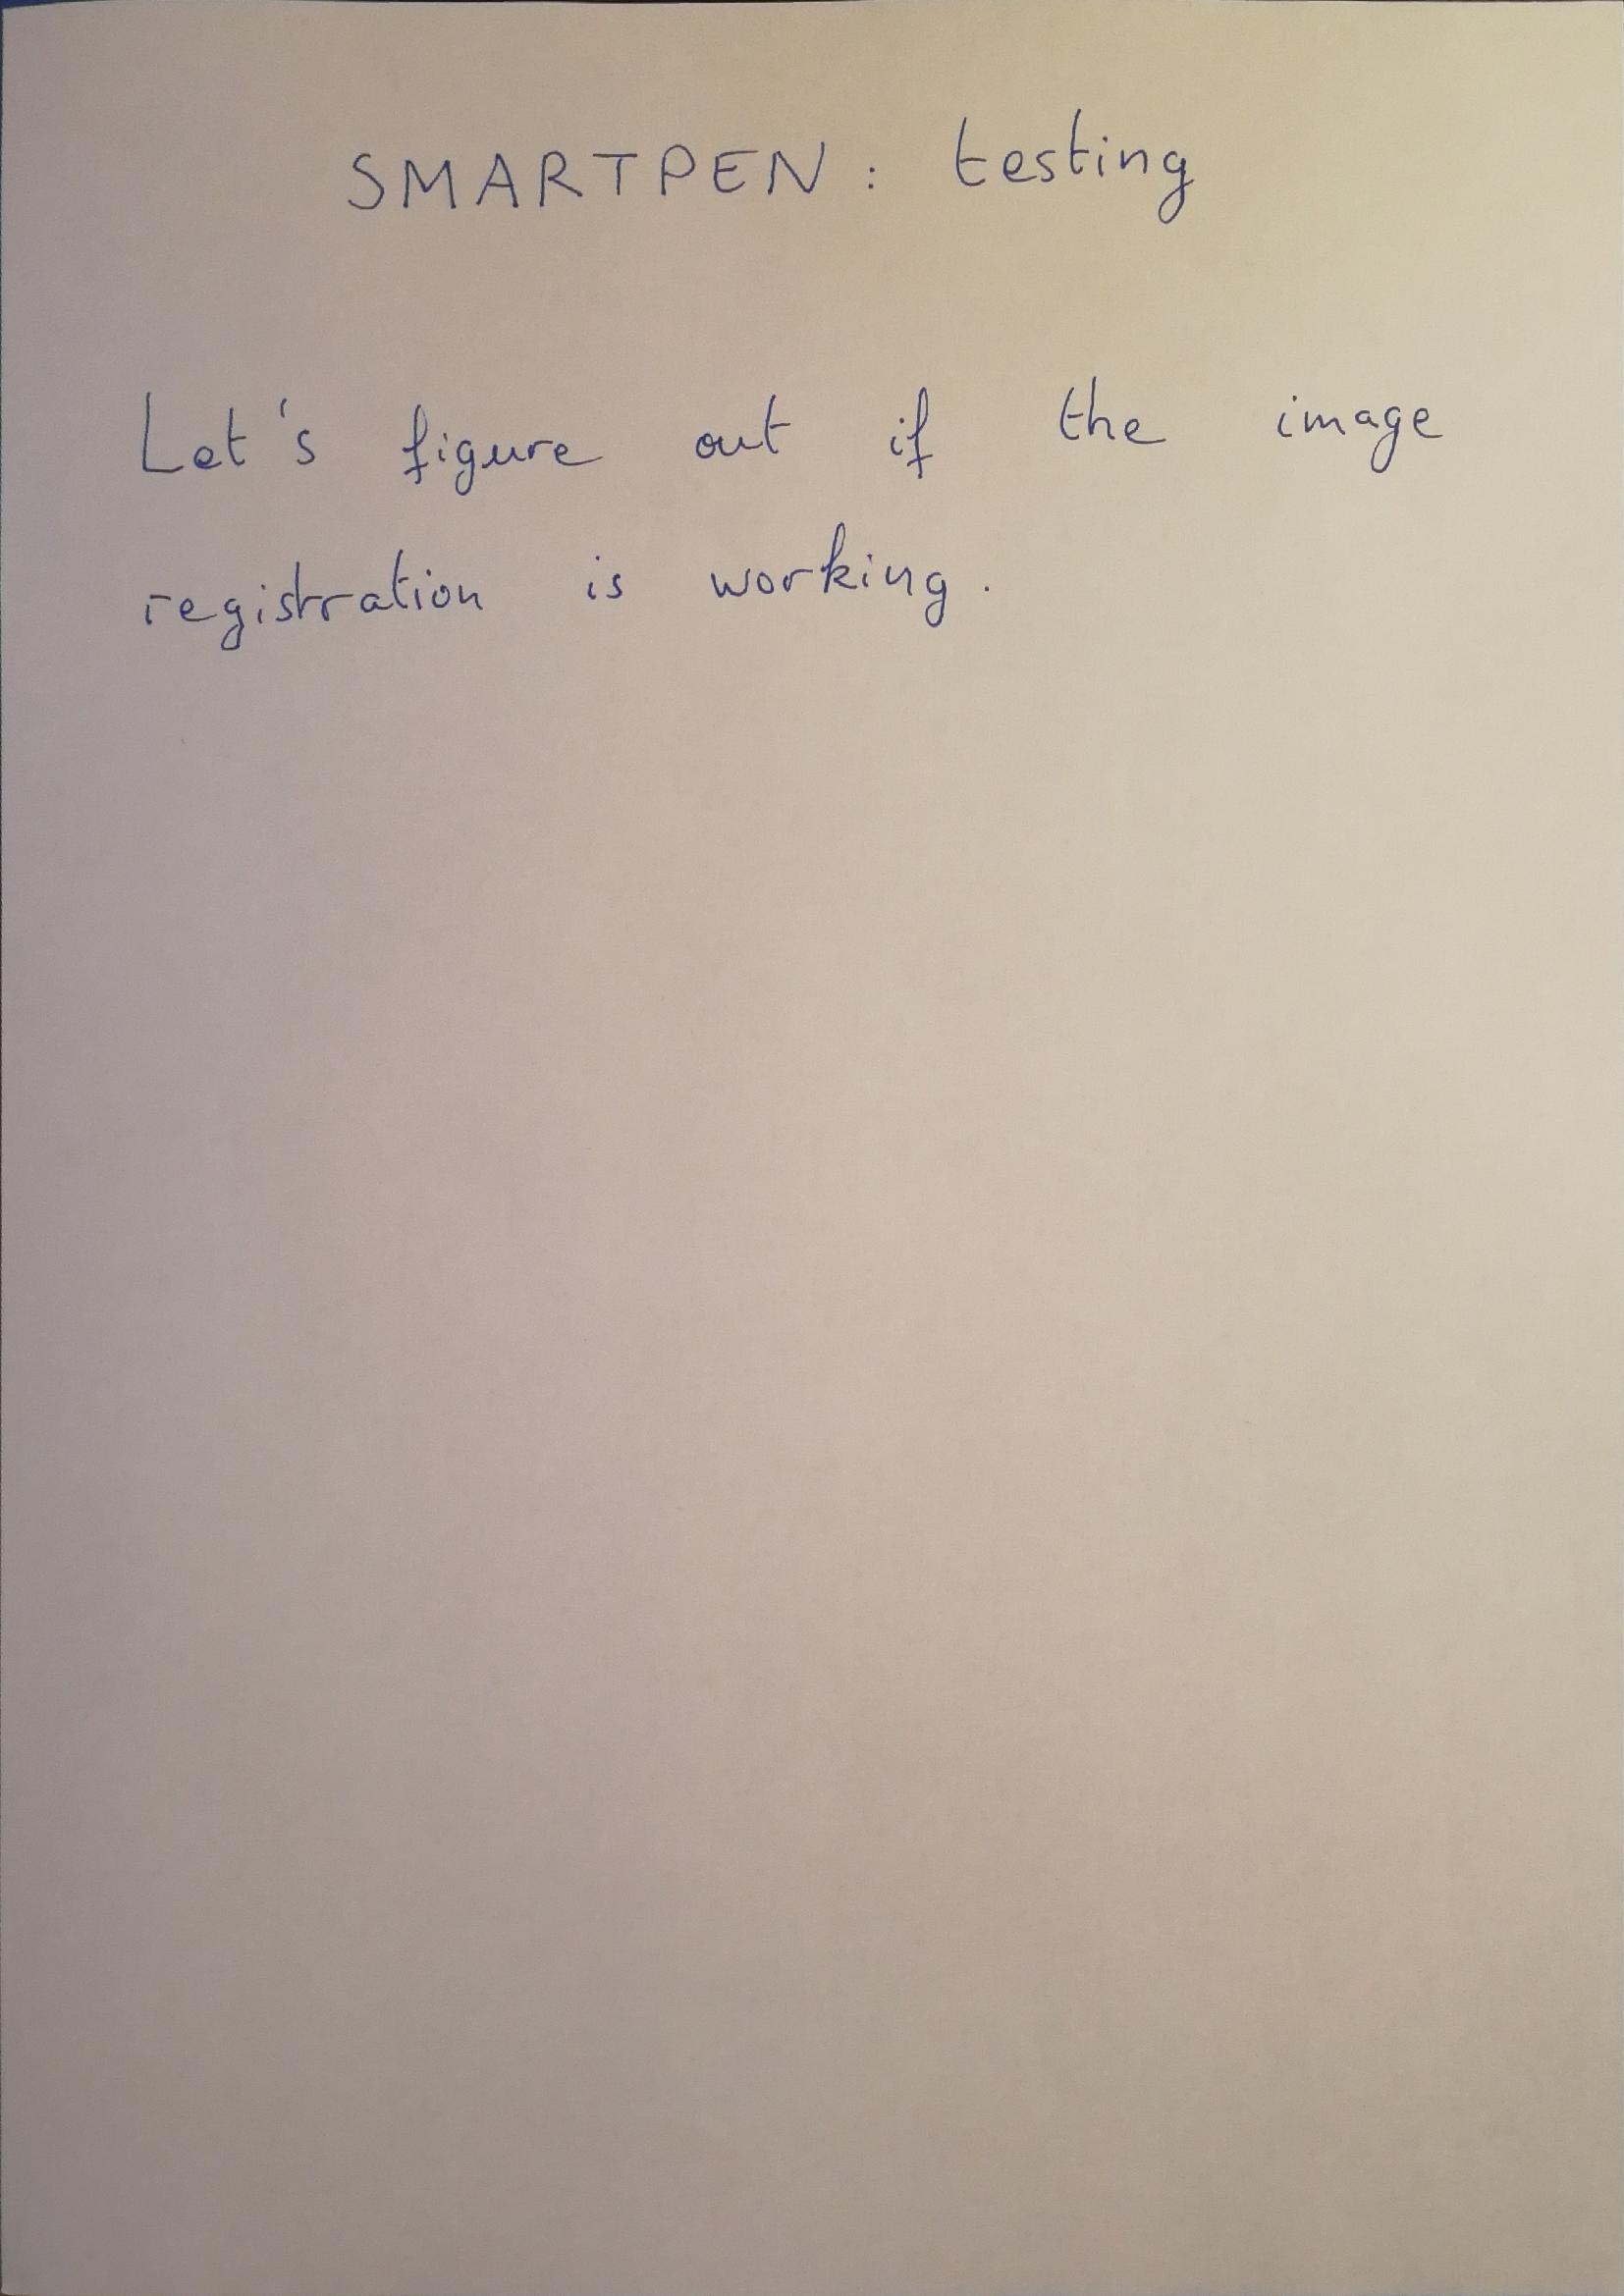 SMARTPEN : testing
Let's figure out if the image
registration is working.